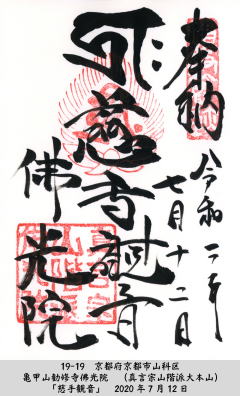 奉納
令和二年
七月十二日
慈手観音
佛光院
19-19　京都府京都市山科区
亀甲山勧修寺佛光院　（真言宗山階派大本山）
「慈手観音」　2020年7月12日